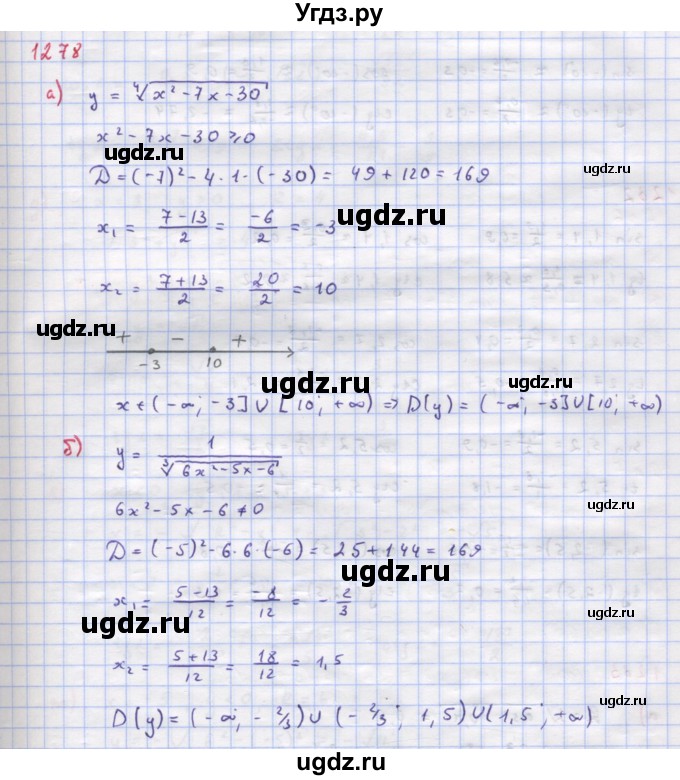 Угдз.ру
1278
а) y = ∜(x² - 7x - 30)
x² - 7x - 30 ⩾ 0
ugdz.ru
D = (-7)² - 4 · 1 · (-30) = 49 + 120 = 169
ugdz.ru
x₁ = (7 - 13)/2 = -6/2 = -3
x₂ = (7 + 13)/2 = 20/2 = 10
ugdz.ru
+ - +
-3 10
ugdz.ru
x ∈ (-∞; -3] ∪ [10; +∞) ⇒ D(y) = (-∞; -3] ∪ [10; +∞)
б) y = 1/∛(6x² - 5x - 6)
ugdz.ru
6x² - 5x - 6 ≠ 0
D = (-5)² - 6 · 6 · (-6) = 25 + 144 = 169
ugdz.ru
x₁ = (5 - 13)/12 = -8/12 = -2/3
ugdz.ru
x₂ = (5 + 13)/12 = 18/12 = 1,5
ugdz.ru
D(y) = (-∞; -2/3) ∪ (-2/3; 1,5) ∪ (1,5; +∞)
ugdz.ru